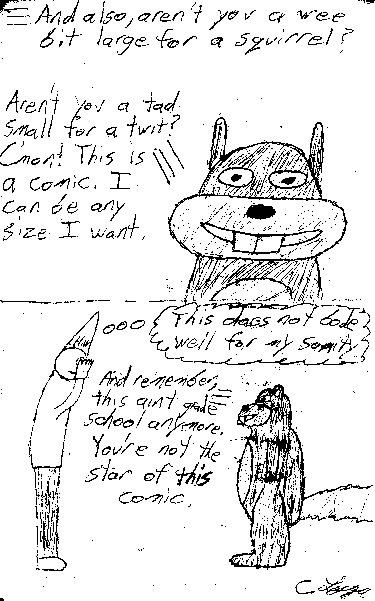 And also, aren't you a wee
bit large for a squirrel?
Aren't you a tad
small for a twit?
C'mon! This is
a comic. I
can be any
size I want.
This does not bode
well for my sanity
And remember,
this aint grade
school anymore.
You're not the
star of this
comic.
C